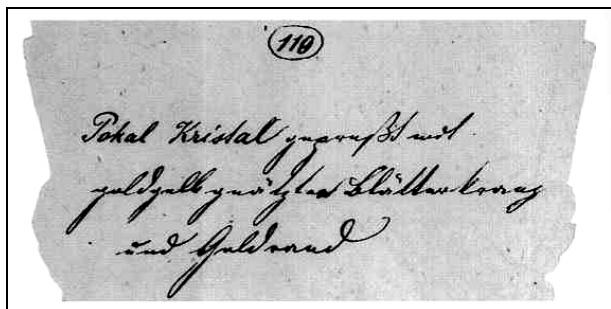 110
Pokal Kristal gepreßt mit
goldgelb geätzten Blätterkranz
und Goldrand